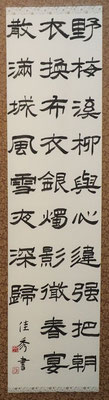 野桜渓柳與心違強把朝
衣換布衣銀燭影微春宴
散滿城風雪夜深歸
佳秀書